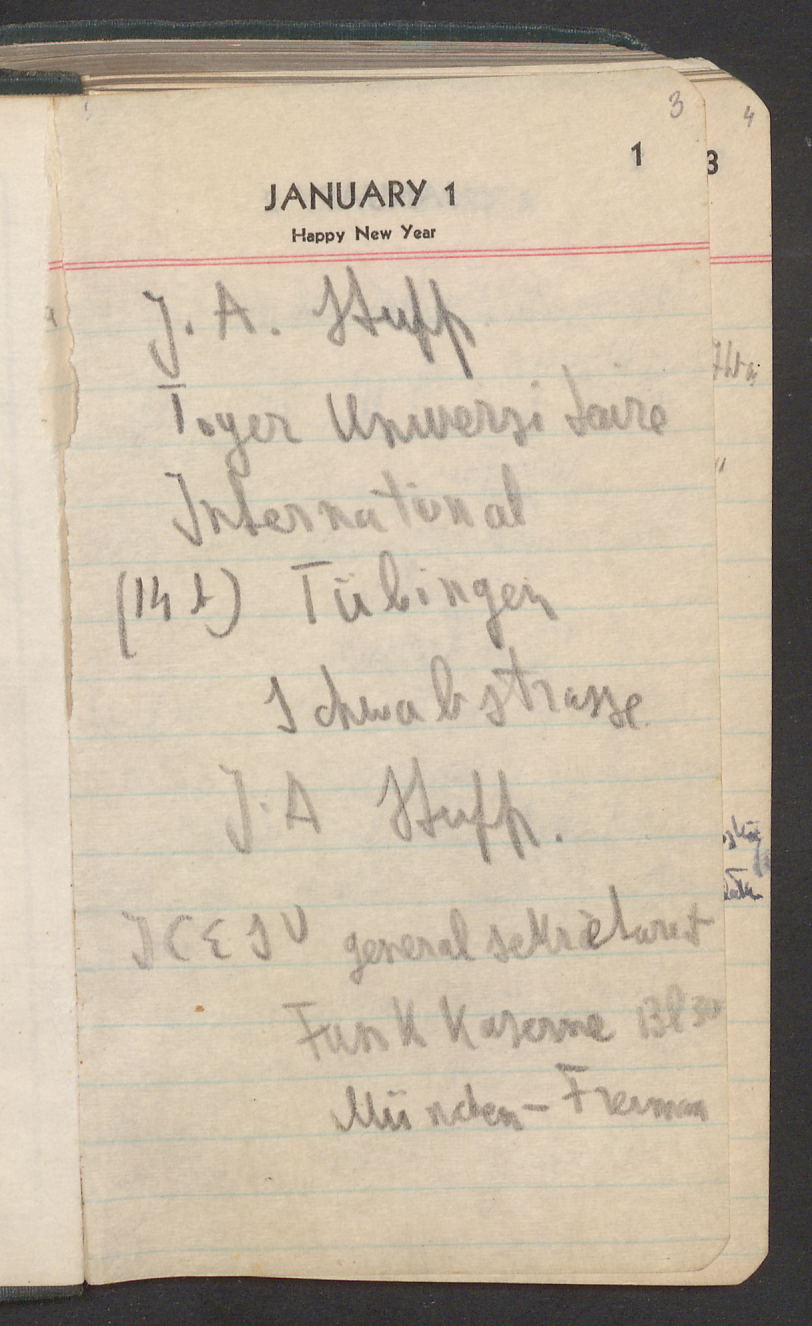 3
4
1
3
JANUARY 1
Happy New Year
J. A. Stupp
Foyer Universitaire
International
(14 b) Tübingen
Schwabstrasse
J. A Stupp.
generalsekretariat
Funk Kaserne
München-Freiman